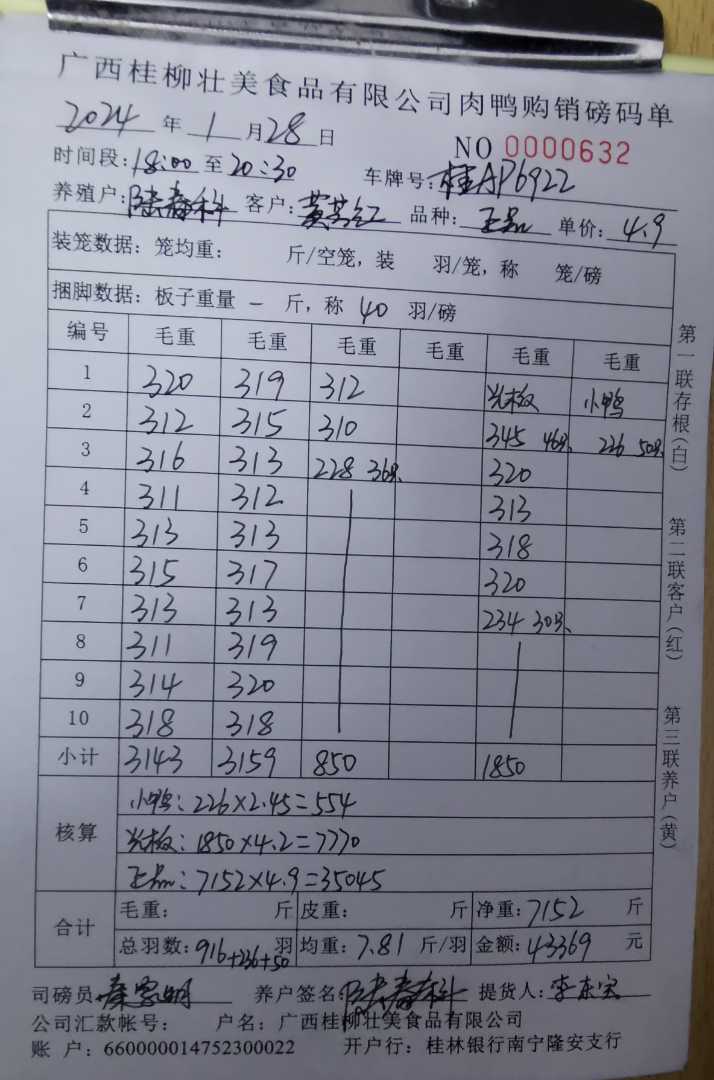 广西桂柳壮美食品有限公司肉鸭购销磅码单
2024 年 1 月 28 日 NO 0000632
时间段:18:00 至 20:30 车牌号:桂AP6922
养殖户:陆春科 客户:黄芳红 品种:正品 单价:4.9
装笼数据:笼均重: 斤/空笼,装 羽/笼,称 笼/磅
捆脚数据:板子重量 — 斤,称 40 羽/磅
编号 毛重 毛重 毛重 毛重 毛重 毛重
1 320 319 312 光板 小鸭
2 312 315 310 345 46只 226 50只
3 316 313 228 36只 320
4 311 312 313
5 313 313 318
6 315 317 320
7 313 313 234 30只
8 311 319
9 314 320
10 318 318
小计 3143 3159 850 1850
核算
小鸭:226×2.45=554
光板:1850×4.2=7770
正品:7152×4.9=35045
合计
毛重: 斤 皮重: 斤 净重:7152 斤
总羽数:916+236+50 羽 均重:7.81 斤/羽 金额:43369 元
司磅员: 养户签名:陆春科 提货人:李东宝
公司汇款帐号: 户名:广西桂柳壮美食品有限公司
账 户:660000014752300022 开户行:桂林银行南宁隆安支行
第一联存根(白) 第二联客户(红) 第三联养户(黄)